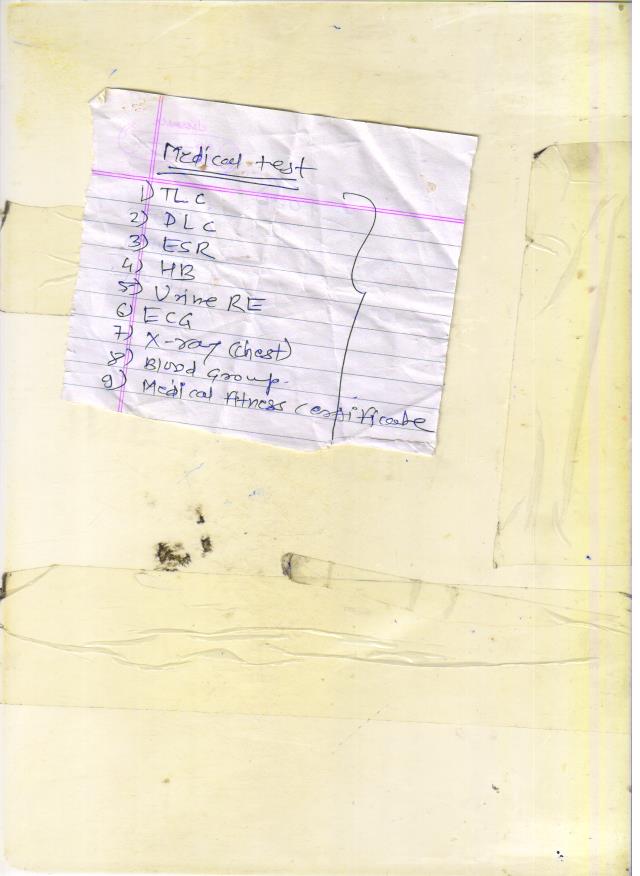 Medical test
1) TLC
2) DLC
3) ESR
4) HB
5) Urine RE
6) ECG
7) X-ray (Chest)
8) Blood Group.
9) Medical fitness certificate